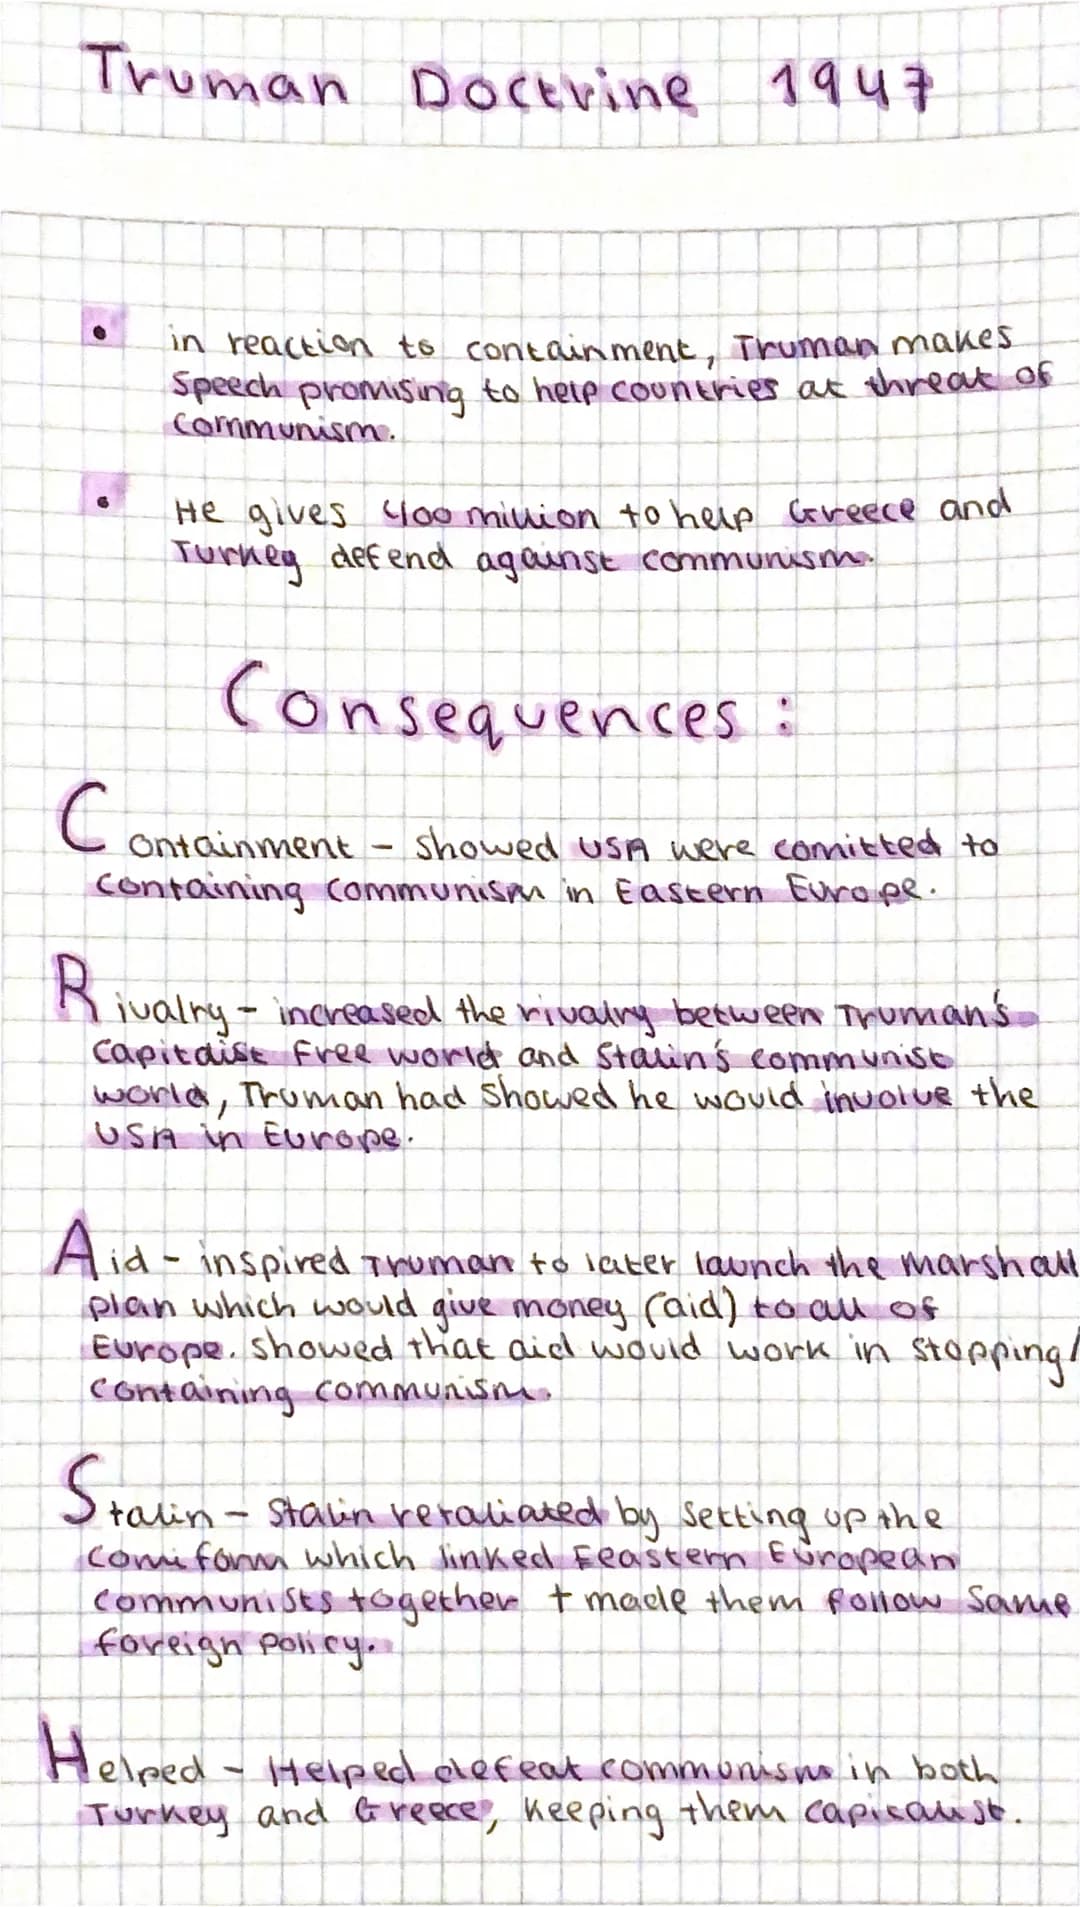 Truman Doctrine 1947
• in reaction to containment, Truman makes
Speech promising to help countries at threat of
communism.
• He gives 400 million to help Greece and
Turkey defend against communism.
Consequences :
Containment - showed USA were comitted to
containing communism in Eastern Europe.
Rivalry - increased the rivalry between Truman's
capitalist free world and Stalin's communist
world, Truman had showed he would involve the
USA in Europe.
Aid - inspired Truman to later launch the marshall
plan which would give money (aid) to all of
Europe. showed that aid would work in stopping/
containing communism.
Stalin - Stalin retaliated by setting up the
comiform which linked Eeastern European
communists together + made them follow same
foreign policy.
Helped - Helped defeat communism in both
Turkey and Greece, keeping them capitalist.